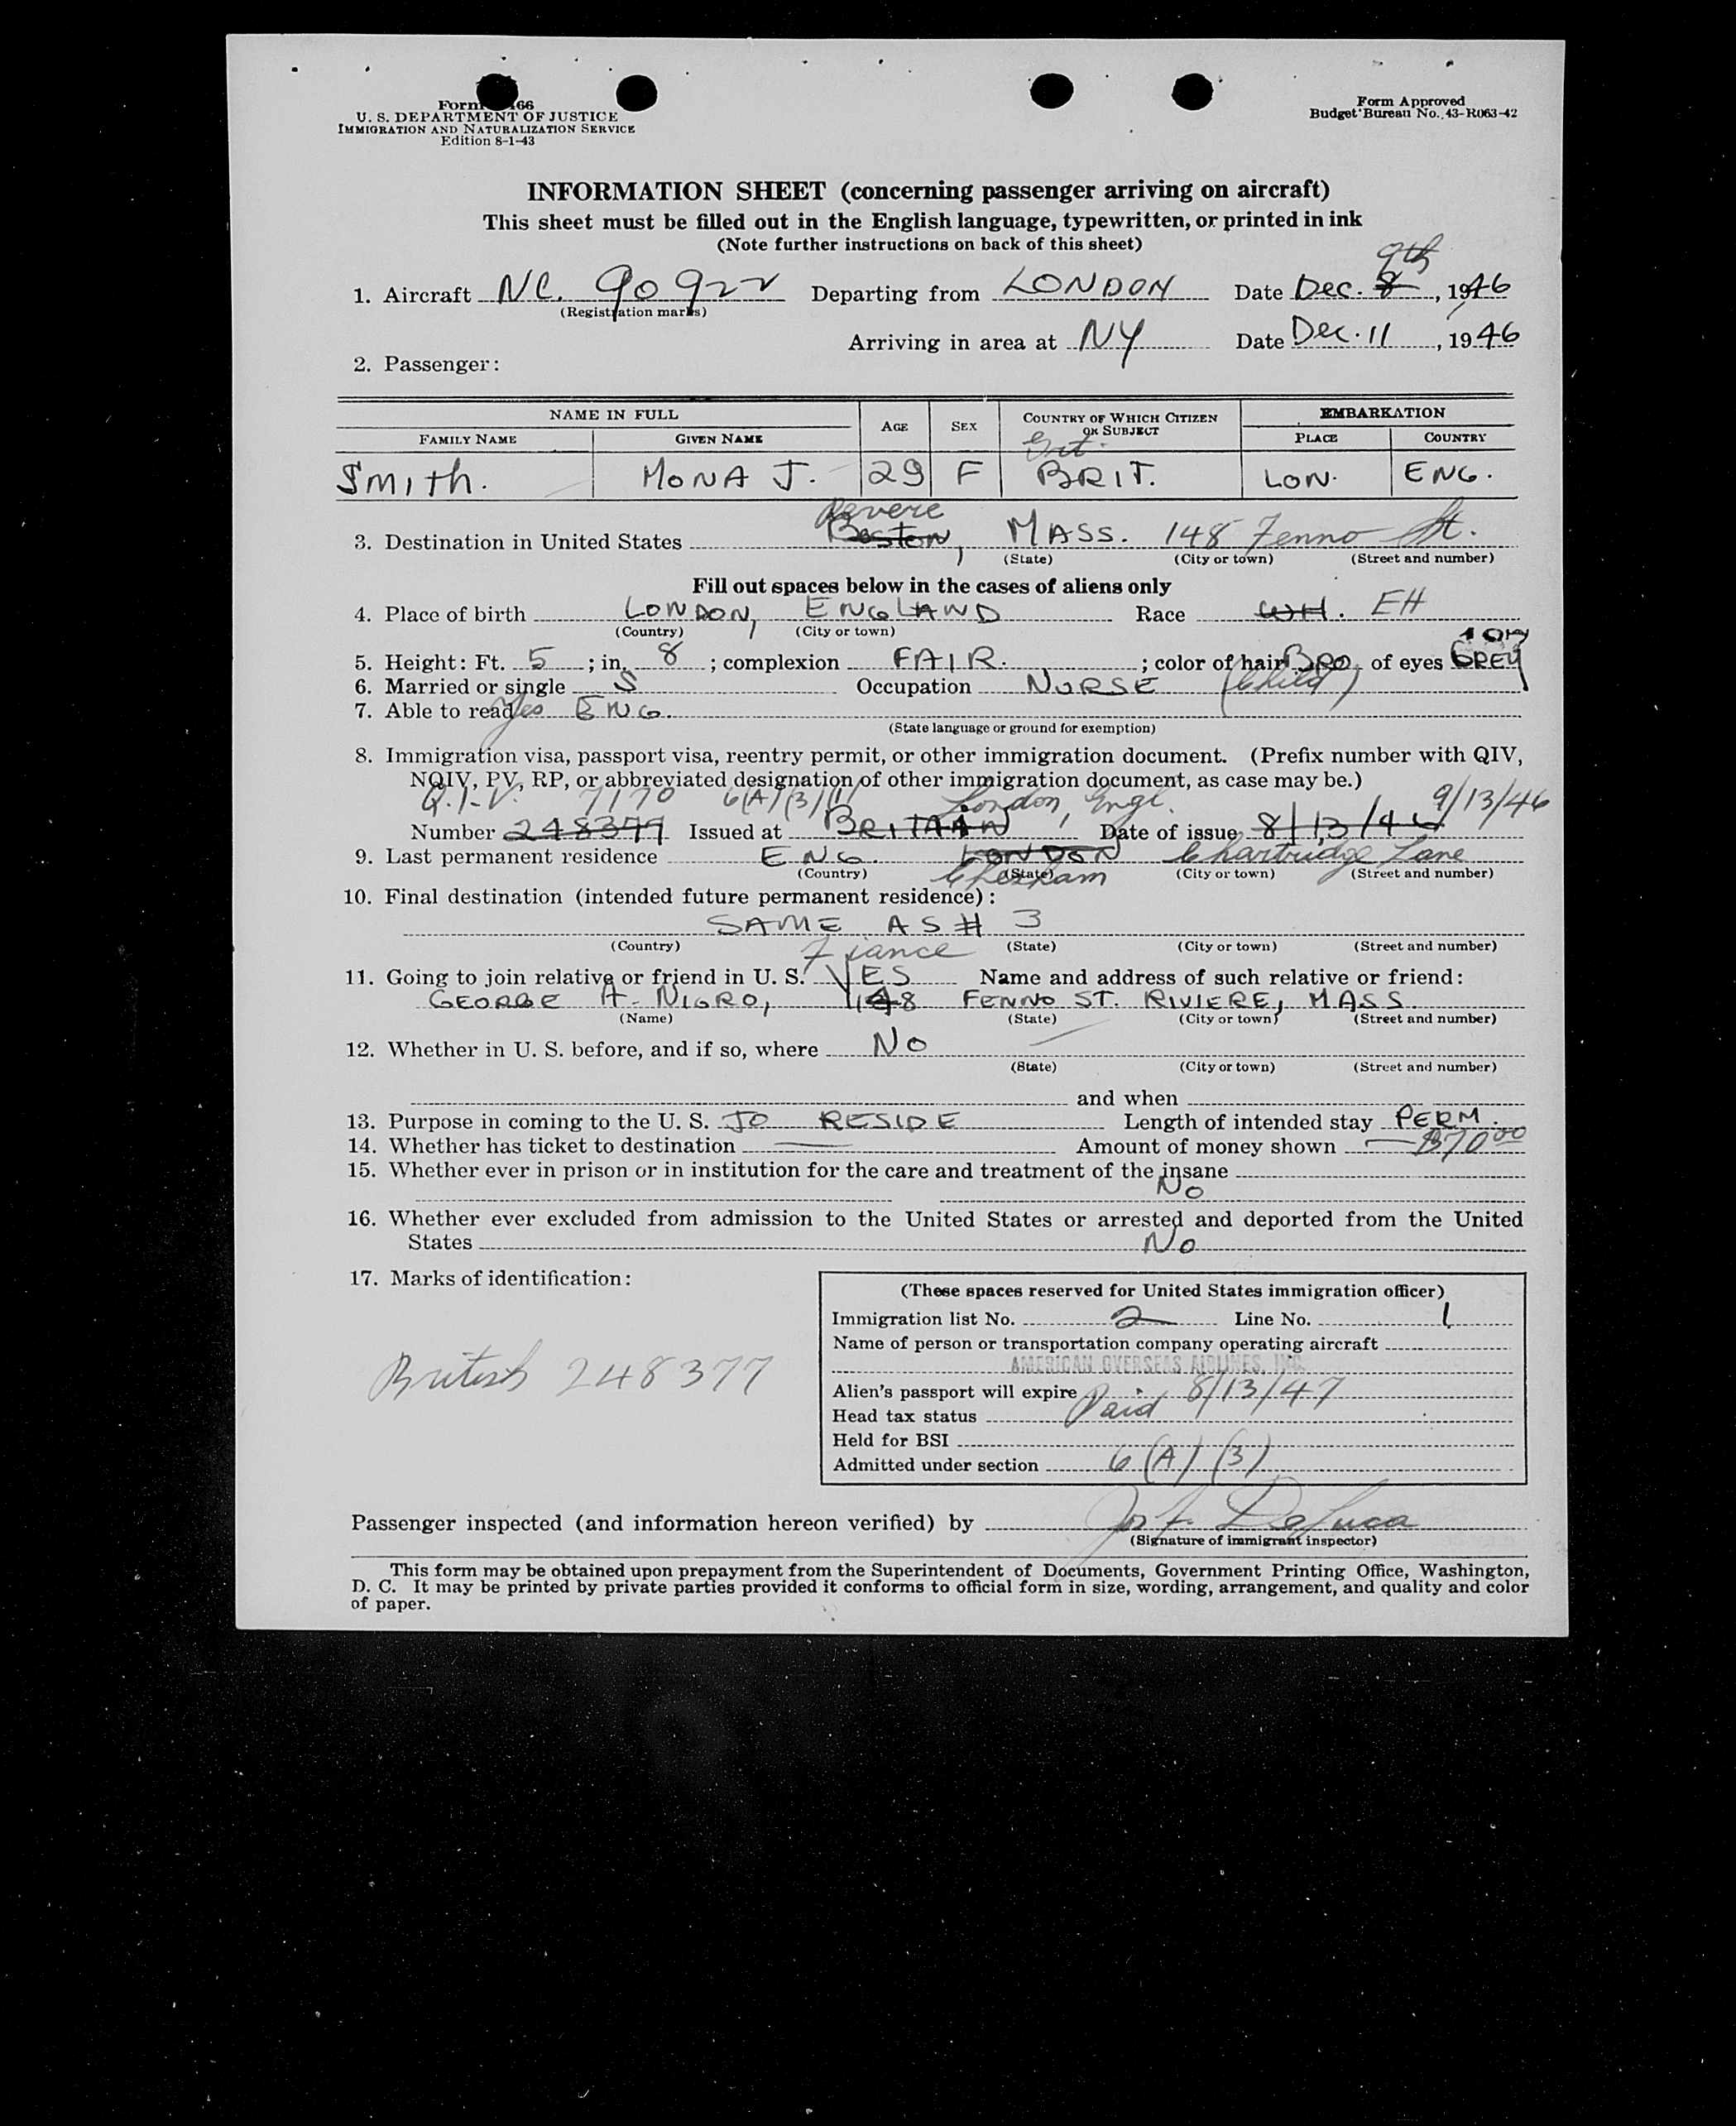 Form 66
U. S. DEPARTMENT OF JUSTICE
IMMIGRATION AND NATURALIZATION SERVICE
Edition 8-1-43
Form Approved
Budget Bureau No. 43-R063-42
INFORMATION SHEET (concerning passenger arriving on aircraft)
This sheet must be filled out in the English language, typewritten, or printed in ink
(Note further instructions on back of this sheet)
9th
1. Aircraft NC. 90922 Departing from LONDON Date Dec. 8, 1946
(Registration marks)
Arriving in area at NY Date Dec. 11, 1946
2. Passenger:
NAME IN FULL AGE SEX COUNTRY OF WHICH CITIZEN OR SUBJECT EMBARKATION
FAMILY NAME GIVEN NAME PLACE COUNTRY
Smith. MONA J. 29 F BRIT. LON. ENG.
Revere
3. Destination in United States Boston, MASS. 148 Fenno St.
(State) (City or town) (Street and number)
Fill out spaces below in the cases of aliens only
4. Place of birth LONDON, ENGLAND Race WH. EH
(Country) (City or town)
5. Height: Ft. 5; in. 8; complexion FAIR.; color of hair BRO. of eyes GREY
6. Married or single S Occupation NURSE (Child)
7. Able to read Yes ENG.
(State language or ground for exemption)
8. Immigration visa, passport visa, reentry permit, or other immigration document. (Prefix number with QIV,
NQIV, PV, RP, or abbreviated designation of other immigration document, as case may be.)
Q.I.V. 7170 6(A)(3)(1) London, Engl. 9/13/46
Number 248377 Issued at BRITAIN Date of issue 8/13/46
9. Last permanent residence ENG. LONDON Chartridge Lane
(Country) (State) (City or town) (Street and number)
Chesham
10. Final destination (intended future permanent residence):
SAME AS # 3
(Country) (State) (City or town) (Street and number)
Fiance
11. Going to join relative or friend in U. S. YES Name and address of such relative or friend:
GEORGE A. NIGRO, 148 FENNO ST. RIVIERE, MASS.
(Name) (State) (City or town) (Street and number)
12. Whether in U. S. before, and if so, where NO
(State) (City or town) (Street and number)
and when
13. Purpose in coming to the U. S. TO RESIDE Length of intended stay PERM.
14. Whether has ticket to destination Amount of money shown $70.00
15. Whether ever in prison or in institution for the care and treatment of the insane
No
16. Whether ever excluded from admission to the United States or arrested and deported from the United
States No
17. Marks of identification:
British 248377
(These spaces reserved for United States immigration officer)
Immigration list No. 2 Line No. 1
Name of person or transportation company operating aircraft
AMERICAN OVERSEAS AIRLINES, INC.
Alien's passport will expire 8/13/47
Head tax status Paid
Held for BSI
Admitted under section 6(A)(3)
Passenger inspected (and information hereon verified) by Jos F. DeLuca
(Signature of immigrant inspector)
This form may be obtained upon prepayment from the Superintendent of Documents, Government Printing Office, Washington,
D. C. It may be printed by private parties provided it conforms to official form in size, wording, arrangement, and quality and color
of paper.